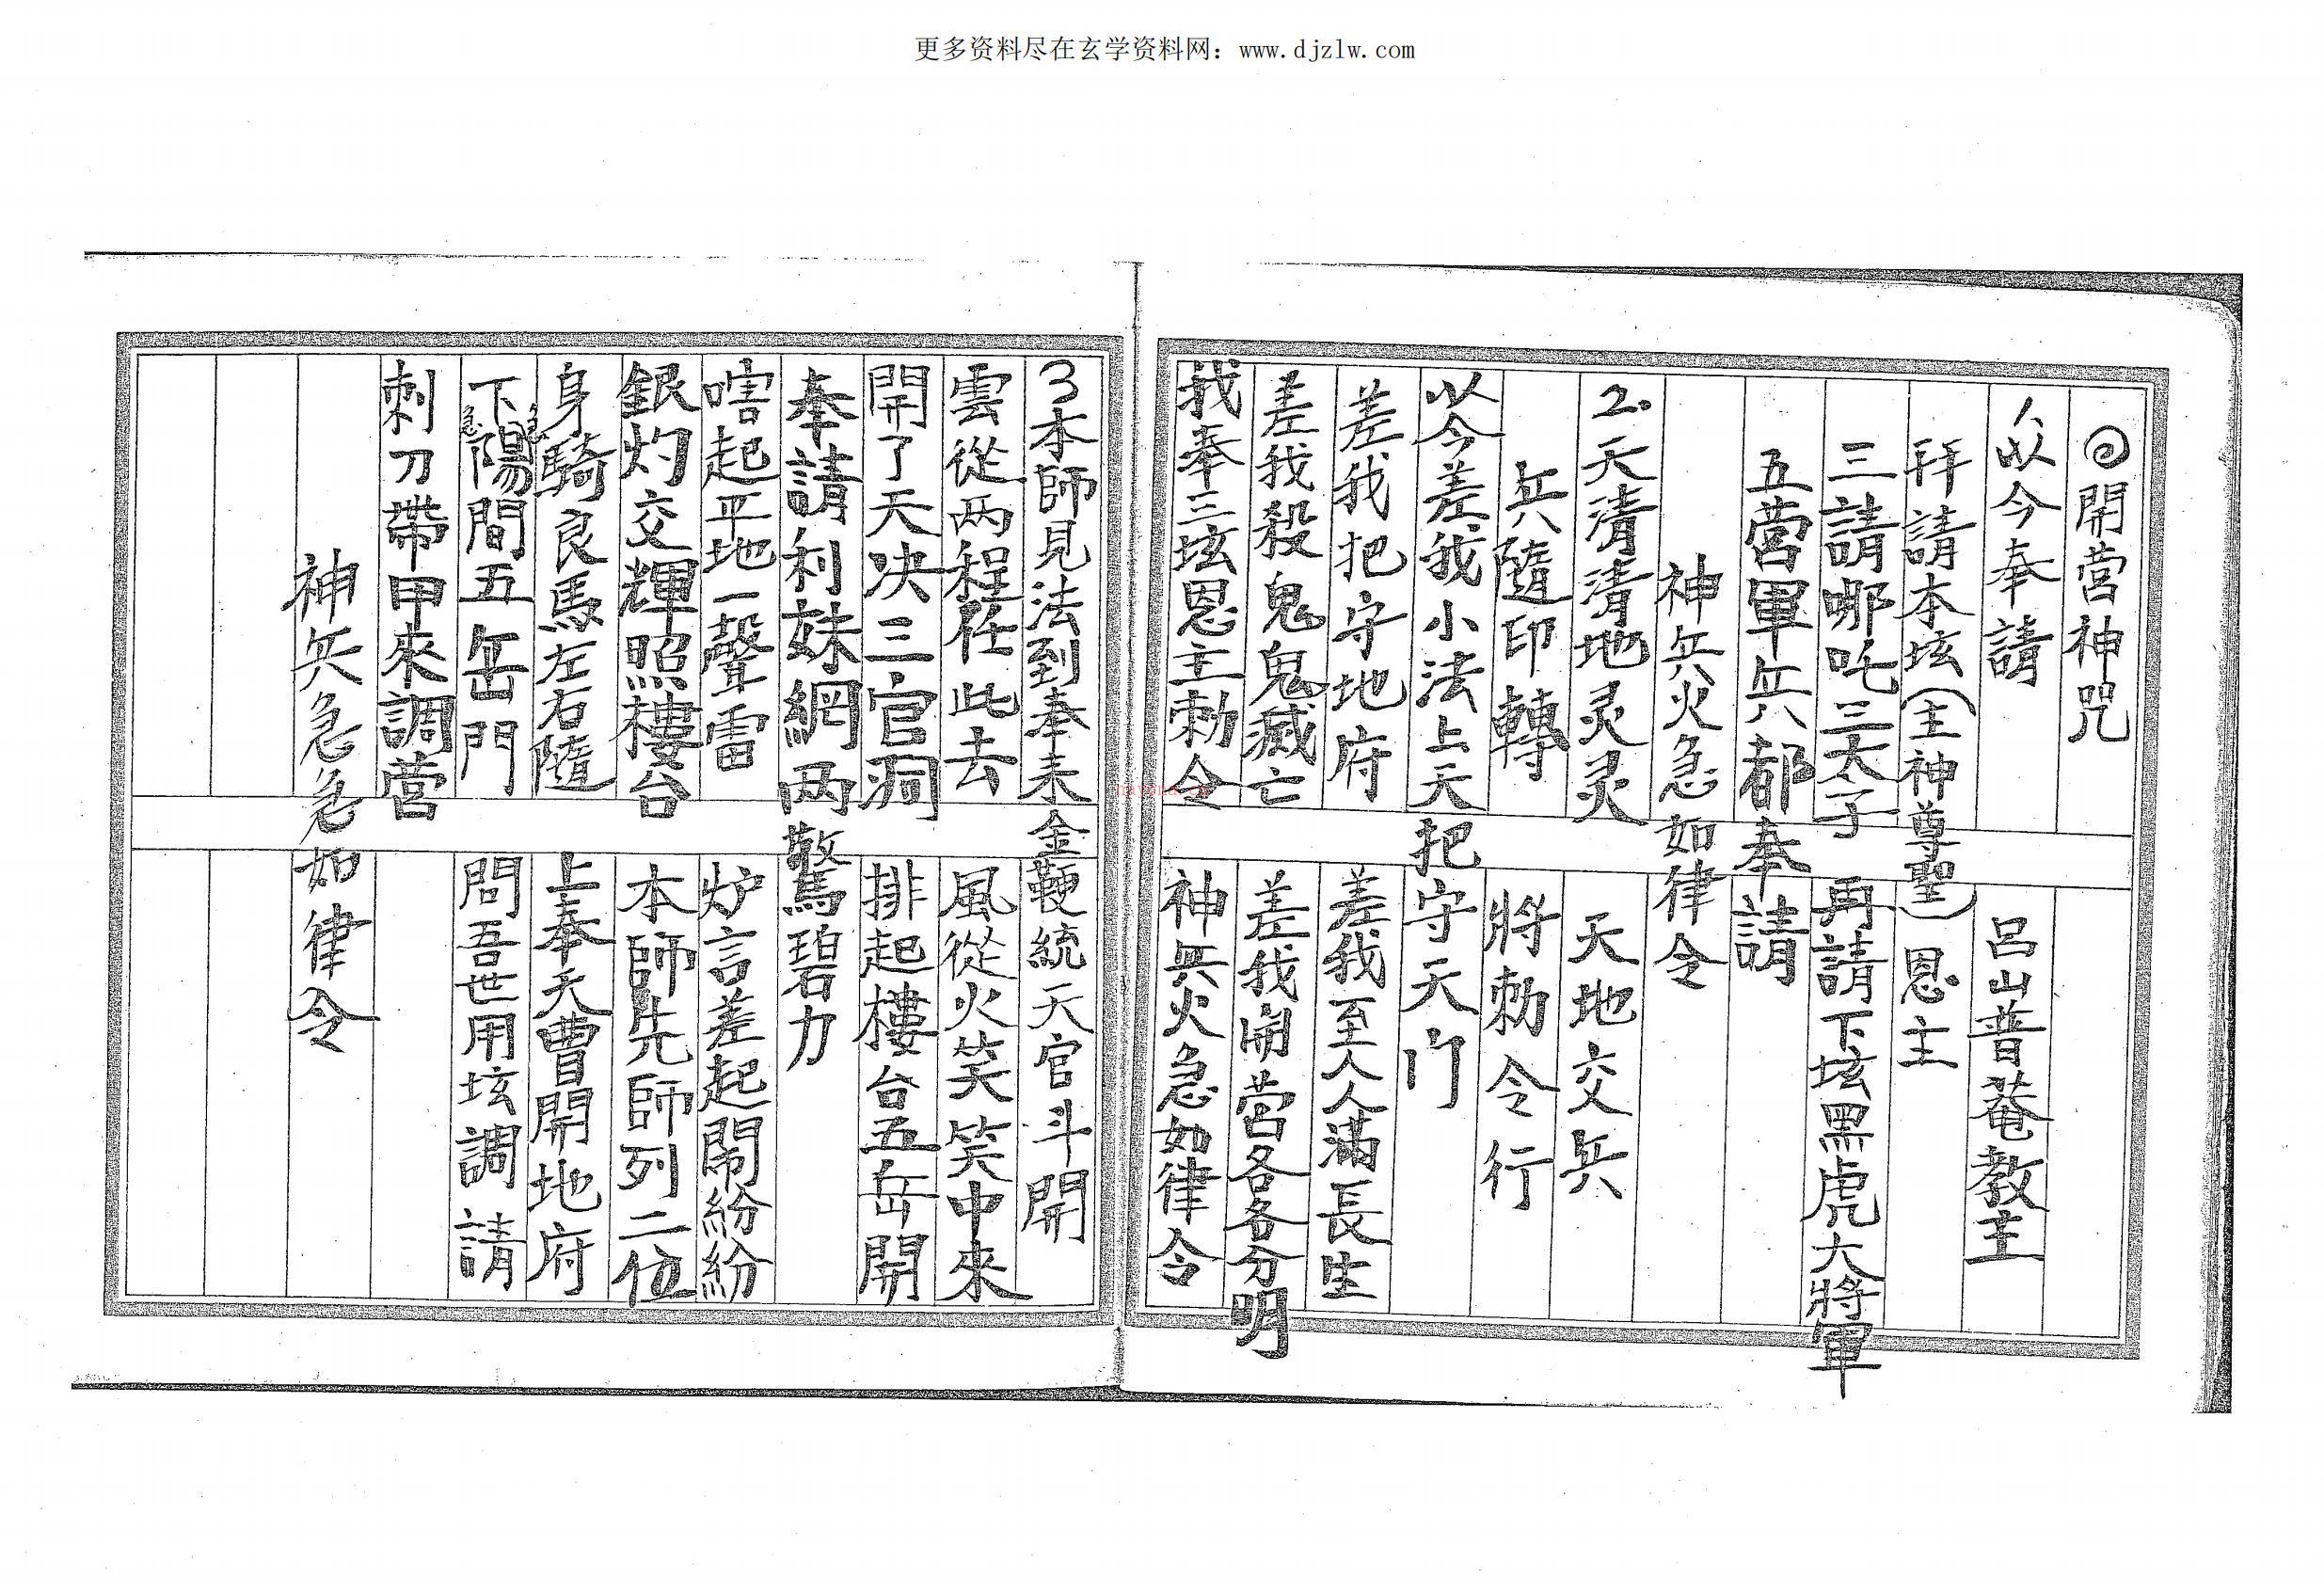 更多资料尽在玄学资料网：www.djzlw.com
開营神咒
1、以今奉請 呂山普菴教主
拜請本坛（主神尊聖）恩主
三請哪吒三太子 再請下坛黑虎大將軍
五营軍兵都奉請
神兵火急如律令
2.天清清地灵灵 天地交兵
兵隨印轉 將勅令行
以今差我小法上天把守天门
差我把守地府 差我至人人滿長生
差我殺鬼鬼滅亡 差我開营各各分明
我奉三坛恩主勅令 神兵火急如律令
3本師見法到奉来金鞭統天官斗開
雲從两程任此去 風從火笑笑中來
開了天决三官洞 排起樓台五岳開
奉請利妹網两驚碧力
嗐起平地一聲雷 炉言差起鬧紛紛
銀灼交輝照樓台 本師先師列二位
身騎良馬左右隨 上奉天曹開地府
下陽間五岳門 問吾世用坛調請
急急
刺刀帶甲來調营
神兵急急如律令
nayona.cn